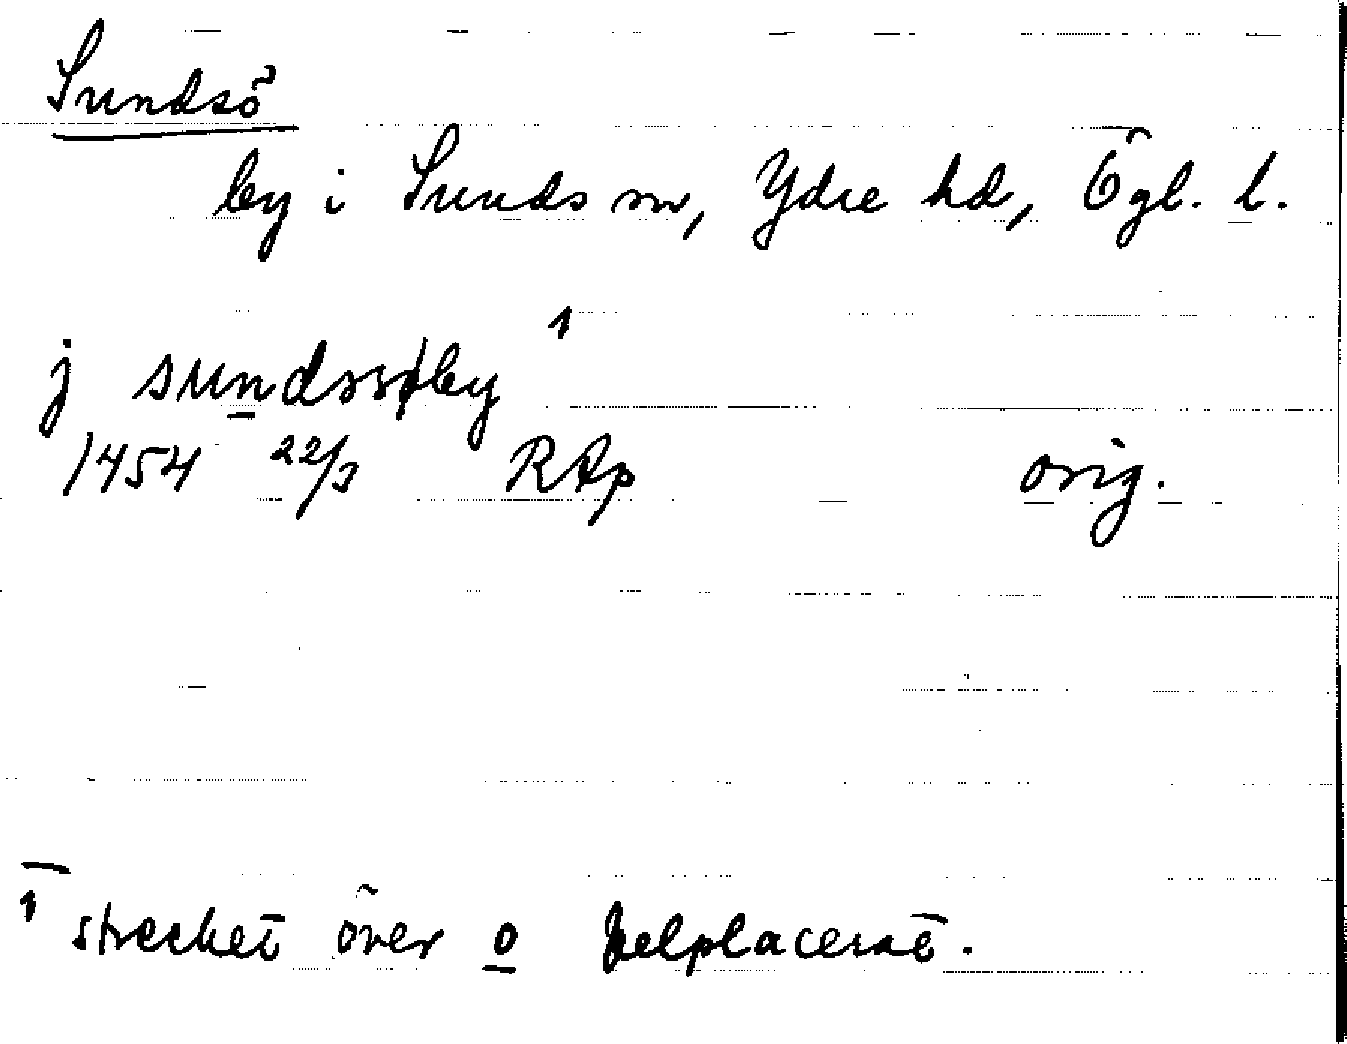 Sundsö
by i Sunds sn, Ydre hd, Ögl. l.
j sundzsøby ¹
1454 22/3 RAp orig.
¹ strecket över o felplacerat.